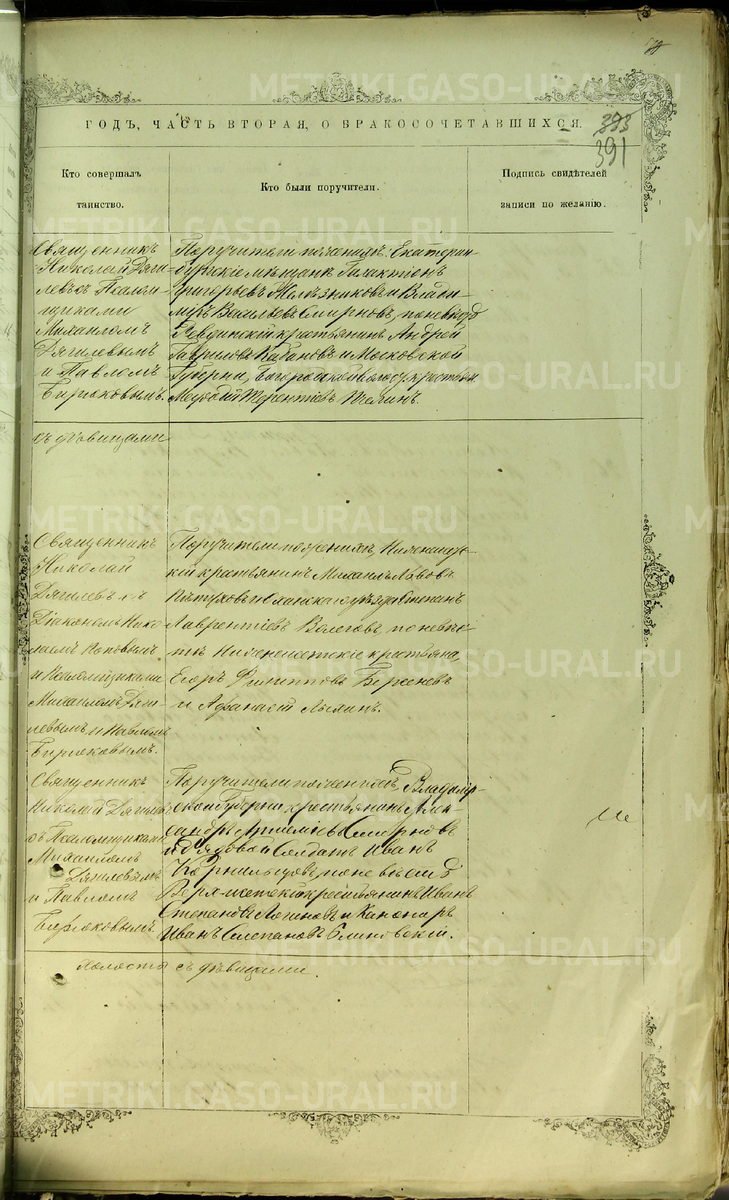 ГОДЪ, ЧАСТЬ ВТОРАЯ, О БРАКОСОЧЕТАВШИХСЯ.
391
Кто совершалъ таинство.
Кто были поручители.
Подпись свидѣтелей записи по желанію.
Священникъ
Николай Дяги
левъ съ Псалом
щиками
Михаиломъ
Дягилевымъ
и Павломъ
Бирюковымъ.
Поручители по женихѣ: Екатерин
бургскіе мѣщане Галактіонъ
Григорьевъ Желѣзниковъ и Влади
міръ Васильевъ Смирновъ, по невѣстѣ
крестьянинъ Андрей
Гавриловъ Кабановъ и Московской
Губерніи, Богородской волости, крестьян
Терентіевъ
съ дѣвицами
Священникъ
Николай
Дягилевъ съ
Діакономъ Нико
лаемъ Поповымъ
и Псаломщиками
Михаиломъ Дяги
левымъ и Павломъ
Бирюковымъ.
Поручители по женихѣ
крестьянинъ Михаилъ Львовъ
Пѣтуховъ уѣзда Степанъ
Лаврентіевъ Вологовъ, по невѣс
тѣ Нижнеисетскіе крестьяна,
Егоръ Филипповъ
и Афанасій
Священникъ
Николай Дягилевъ
съ Псаломщиками
Михаиломъ
Дягилевымъ
и Павломъ
Бирюковымъ.
Поручители по женихѣ Владимір
ской губерніи крестьянинъ Алек
сандръ Смирновъ
и рядовой Солдатъ Иванъ
Корниловъ, по невѣстѣ
крестьянинъ Иванъ
Степановъ Логиновъ и Канониръ
Иванъ Степановъ
Холостъ съ дѣвицами.
METRIKI.GASO-URAL.RU